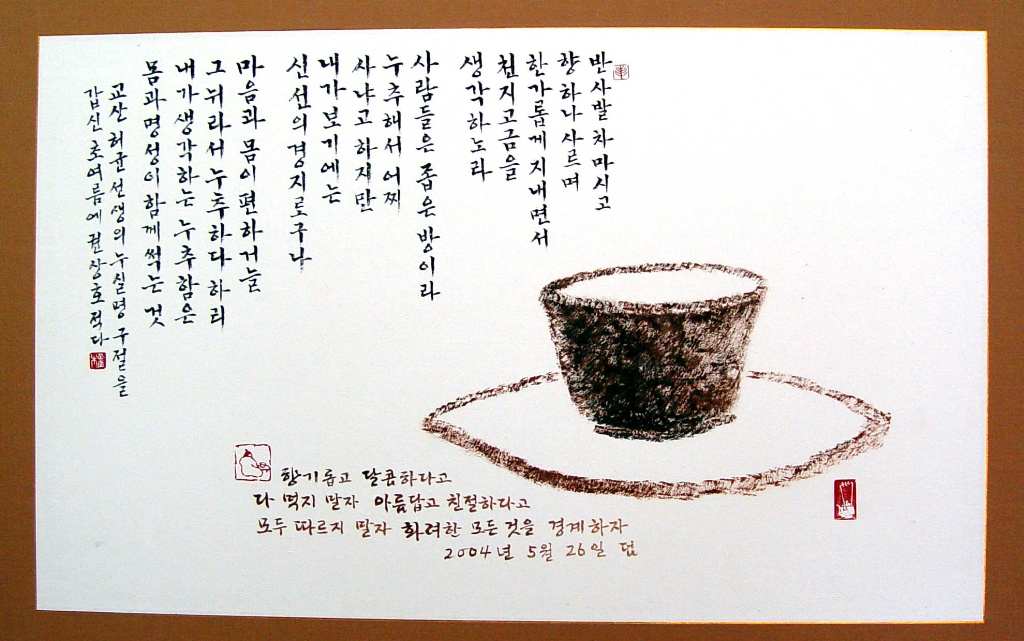 반사발 차 마시고
향 하나 사르며
한가롭게 지내면서
천지고금을
생각하노라
사람들은 좁은 방이라
누추해서 어찌
사냐고 하지만
내가 보기에는
신선의 경지로구나
마음과 몸이 편하거늘
그 뉘라서 누추하다 하리
내가 생각하는 누추함은
몸과 명성이 함께 썩는 것
교산 허균 선생의 누실명 구절을
갑신 초여름에 권상호 적다
향기롭고 달콤하다고
다 먹지 말자 아름답고 친절하다고
모두 따르지 말자 화려한 모든 것을 경계하자
2004년 5월 26일 덤